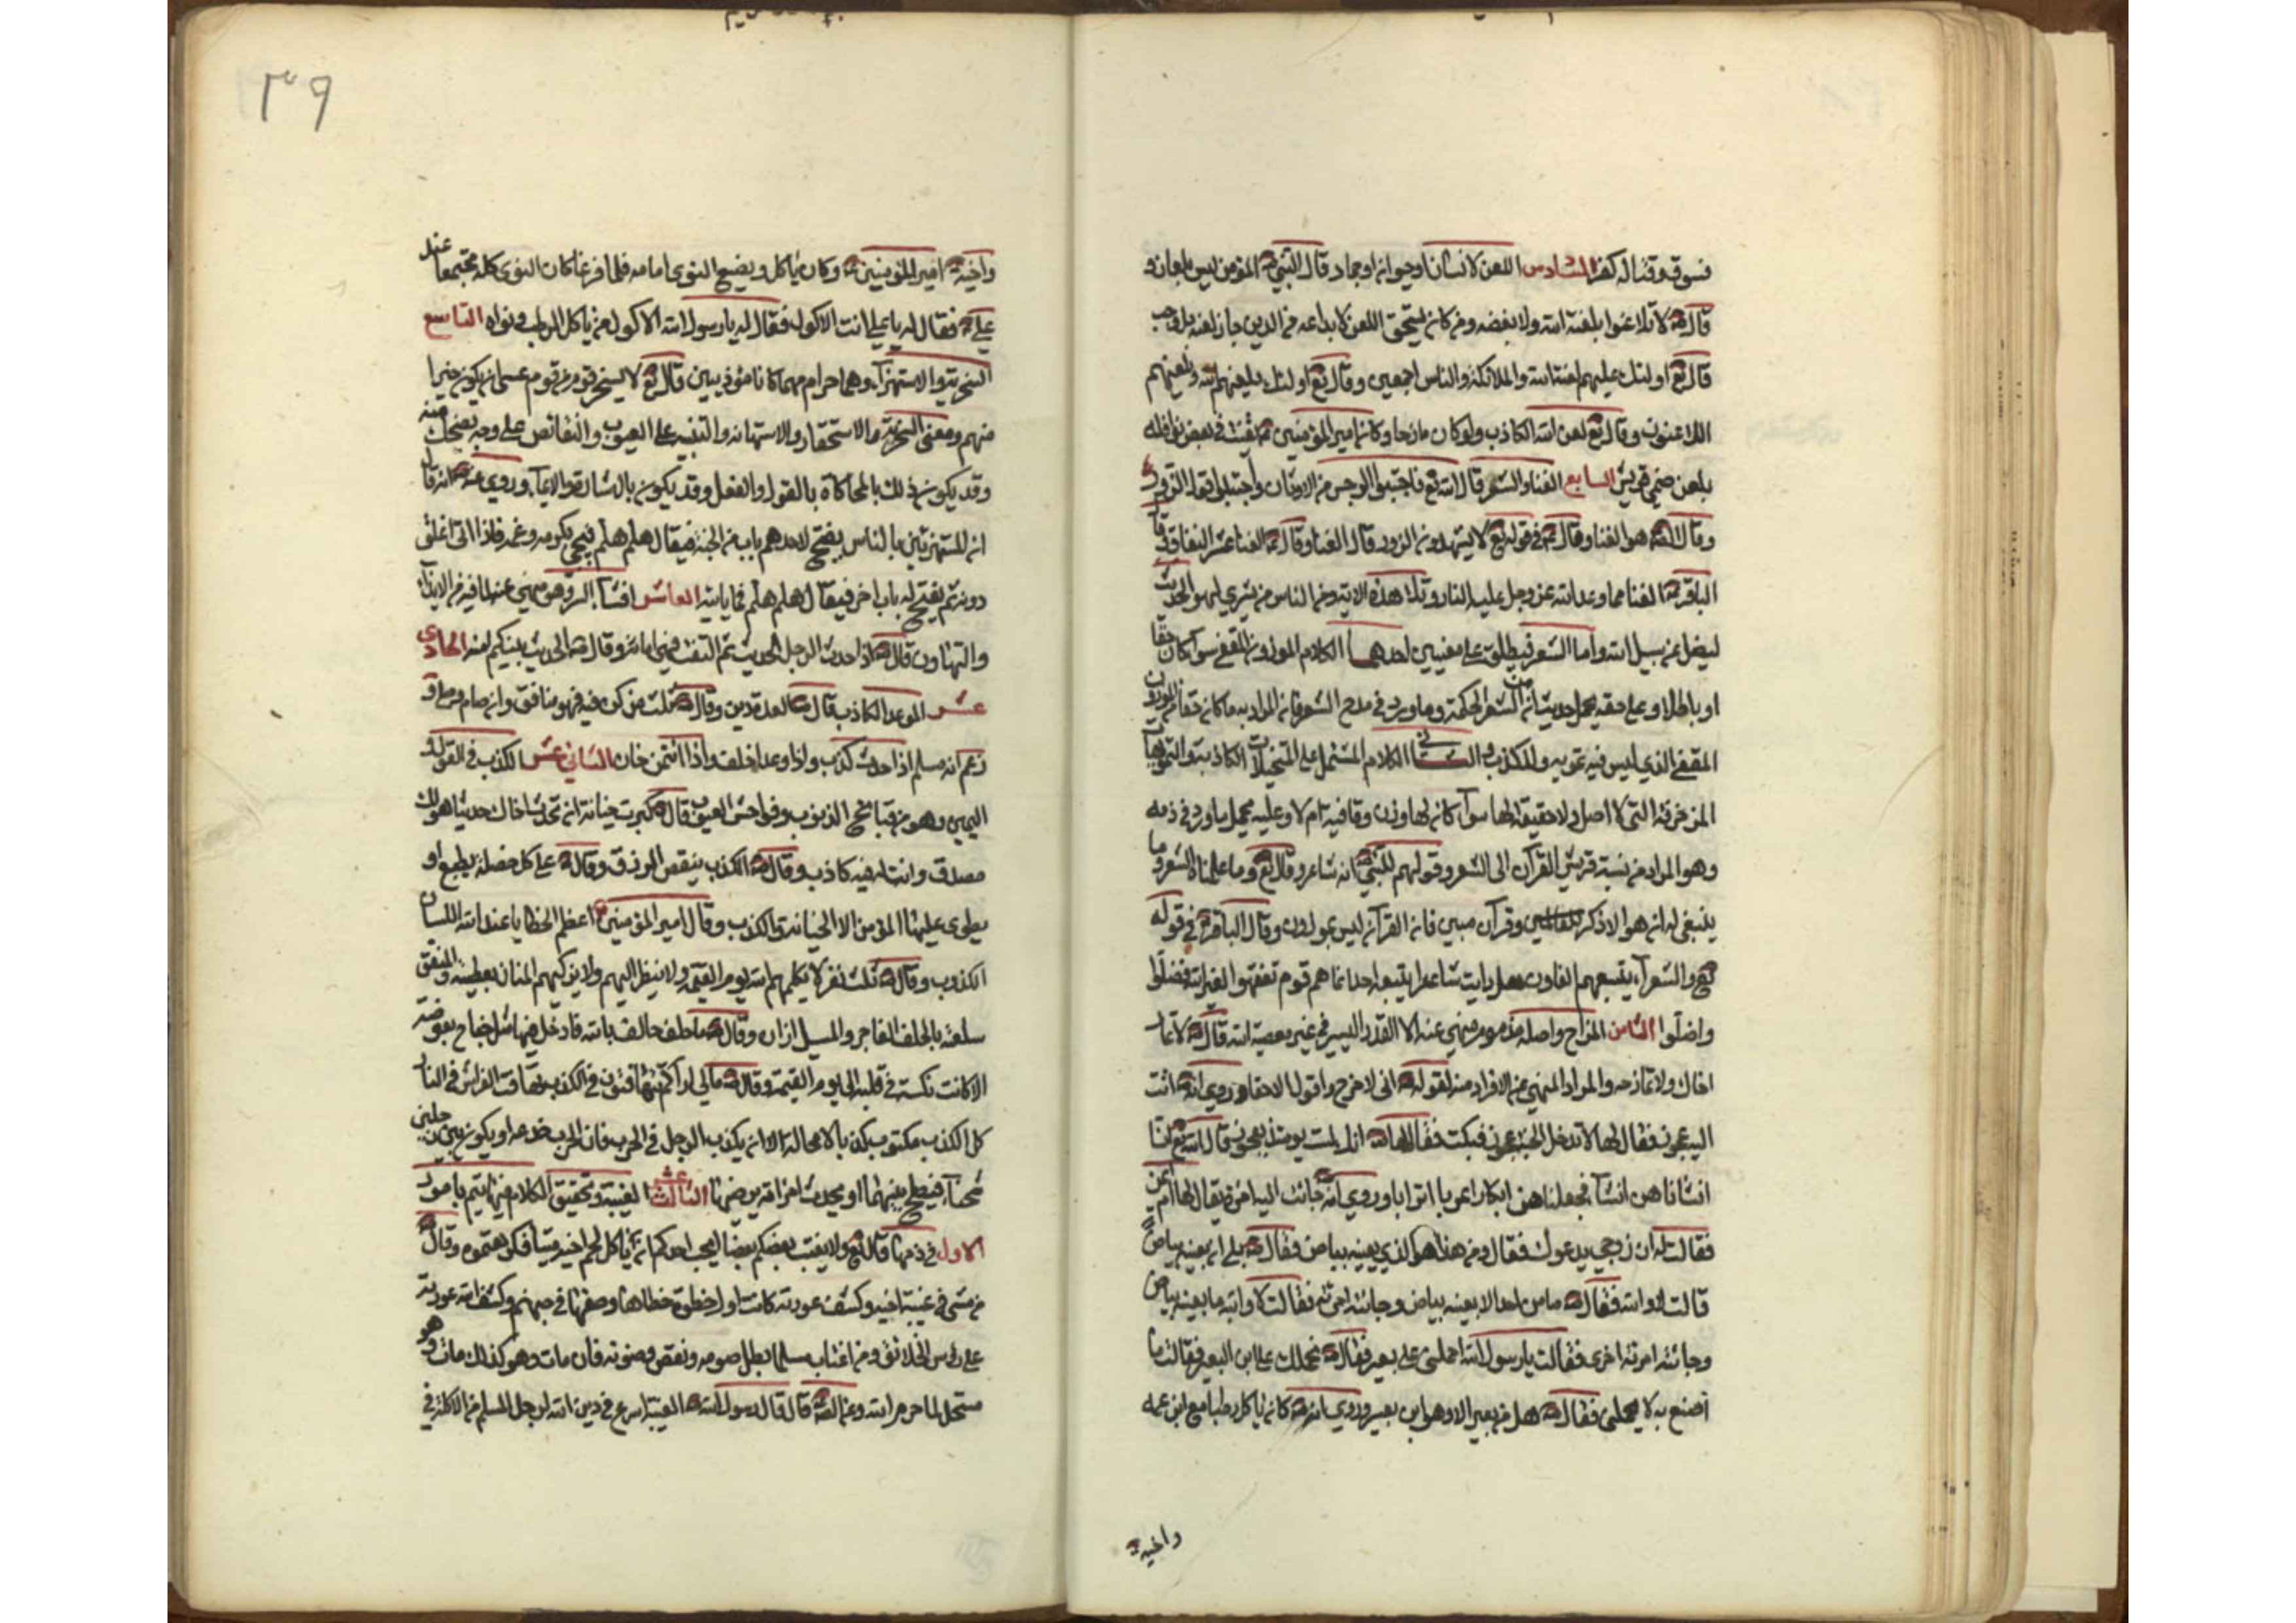 فسوق وقتاله كفر السادس اللعن لانسان او حيوان او جماد قال النبي ص المؤمن ليس بلعان و
قال ص لا تلاعنوا بلعنة الله ولا بغضبه ومن كان يستحق اللعن كابداعه في الدين جاز لعنه بل وجب
قال تع اولئك عليهم لعنة الله والملائكة والناس اجمعين وقال تع اولئك يلعنهم الله ويلعنهم
اللاعنون وقال تع لعن الله الكاذب ولو كان مازحا وكان امير المؤمنين ع يقنت في بعض نوافله
بلعن صنمي قريش السابع الغنا والشعر قال الله تع فاجتنبوا الرجس من الاوثان واجتنبوا قول الزور
وقال الص هو الغنا وقال ع في قوله تع لا يشهدون الزور قال الغنا وقال ع الغنا عش النفاق وقال
الباقر ع الغنا مما وعد الله عز وجل عليه النار وتلا هذه الاية ومن الناس من يشتري لهو الحديث
ليضل عن سبيل الله واما الشعر فيطلق على معنيين احدهما الكلام الموزون المقفى سواء كان حقا
او باطلا وعلى حقه يحمل حديث ان من الشعر لحكمة وما ورد في مدح الشعر فان المراد به ما كان حقا من الموزون
المقفى الذي ليس فيه تمويه ولا كذب والثاني الكلام المشتمل على التخيلات الكاذبة والتمويهات
المزخرفة التي لا اصل ولا حقيقة لها سواء كان لها وزن وقافية ام لا وعليه يحمل ما ورد في ذمه
وهو المراد من نسبة قريش القرآن الى الشعر وقولهم للنبي ص انه شاعر وقال تع وما علمناه الشعر وما
ينبغي له ان هو الا ذكر وقرآن مبين فان القرآن ليس بموزون وقال الباقر ع في قوله
تع والشعراء يتبعهم الغاون هل رايت شاعرا يتبعه احد انما هم قوم تفقهوا لغير الله فضلوا
واضلوا الثامن المزاح واصله مذموم منهي عنه الا القدر اليسير في غير معصية الله قال ص لا تمار
اخاك ولا تمازحه والمراد المنهي عن الافراد منه لقوله ص اني لامزح ولا قول الا حقا وروي انه اتت
اليه عجوز فقال لها لا تدخل الجنة عجوز فبكت فقال لها ص انك لست يومئذ بعجوز قال الله تع انا
انشاناهن انشاء فجعلناهن ابكارا عربا اترابا وروي انه جائت اليه امراة يقال لها ام ايمن
فقالت له ان زوجي يدعوك فقال ومن هذا هو الذي بعينه بياض فقال ص بلى ان بعينه بياض
قالت لا والله فقال ص ما من احد الا بعينه بياض وجائته امراة فقالت لا والله ما بعينه بياض
وجائته امراة اخرى فقالت يا رسول الله احملني على بعير فقال ص نحملك على ابن البعير فقالت ما
اصنع به لا يحملني فقال ص هل من بعير الا وهو ابن بعير وروي انه ص كان ياكل رطبا مع ابن عمه
واخيه
٣٩
واخيه امير المؤمنين ع وكان ياكل ويضع النوى امامه فلما فرغا كان النوى كله مجتمعا عند
علي ع فقال له يا علي انت الاكول فقال له يا رسول الله الاكول من ياكل الرطب ونواه التاسع
السخرية والاستهزاء وهما حرام مهما كانا مؤذيين قال تع لا يسخر قوم من قوم عسى ان يكون خيرا
منهم ومعنى السخرية الاستحقار والاستهانة والتنبيه على العيوب والنقائص على وجه يضحك منه
وقد يكون ذلك بالمحاكاة بالقول والفعل وقد يكون بالشارة والايماء وروي عنه ص انه قال
ان المستهزئين بالناس يفتح لاحدهم باب من الجنة فيقال هلم هلم فيجئ بكربه وغمه فاذا اتى اغلق
دونه ثم يفتح له باب اخر فيقال هلم هلم فما ياتيه العاشر افشاء السر وهو منهي عنه لما فيه من الايذاء
والتهاون قال ص اذا حدث الرجل الحديث ثم التفت فهي امانة وقال ص الحديث بينكم امنة الحادي
عشر الموعد الكاذب قال ص العدة دين وقال ص ثلث من كن فيه فهو منافق وان صام وصلى و
زعم انه مسلم اذا حدث كذب واذا وعد اخلف واذا ائتمن خان الثاني عشر الكذب في القول و
اليمين وهو من قبائح الذنوب وفواحش العيوب قال ص كبرت خيانة ان تحدث اخاك حديثا هو لك
مصدق وانت له فيه كاذب وقال ص الكذب ينقص الرزق وقال ص على كل خصلة يطبع او
يطوى عليها المؤمن الا الخيانة والكذب وقال امير المؤمنين ع اعظم الخطايا عند الله اللسان
الكذوب وقال ص ثلث نفر لا يكلمهم الله يوم القيمة ولا ينظر اليهم ولا يزكيهم المنان بعطيته والمنفق
سلعته بالحلف الفاجر والمسبل ازاره وقال ص ما حلف حالف بالله فادخل فيها مثل جناح بعوضة
الا كانت نكتة في قلبه الى يوم القيمة وقال ص مالي اراكم تتهافتون في الكذب تهافت الفراش في النار
كل الكذب مكتوب كذبا لا محالة الا ان يكذب الرجل في الحرب فان الحرب خدعة او يكون بين رجلين
شحناء فيصلح بينهما او يحدث امراته يرضيها الثالث عشر الغيبة وتحقيق الكلام فيها يتم بامور
الاول في ذمها قال تع ولا يغتب بعضكم بعضا ايحب احدكم ان ياكل لحم اخيه ميتا فكرهتموه وقال ص
من مشى في غيبة اخيه وكشف عورته كانت اول خطوة خطاها وضعها في جهنم وكشف الله عورته
على رؤس الخلائق ومن اغتاب مسلما بطل صومه ونقض وضوئه فان مات وهو كذلك مات وهو
مستحل لما حرم الله وعن الص قال قال رسول الله ص الغيبة اسرع في دين الله الرجل المسلم من الاكلة في